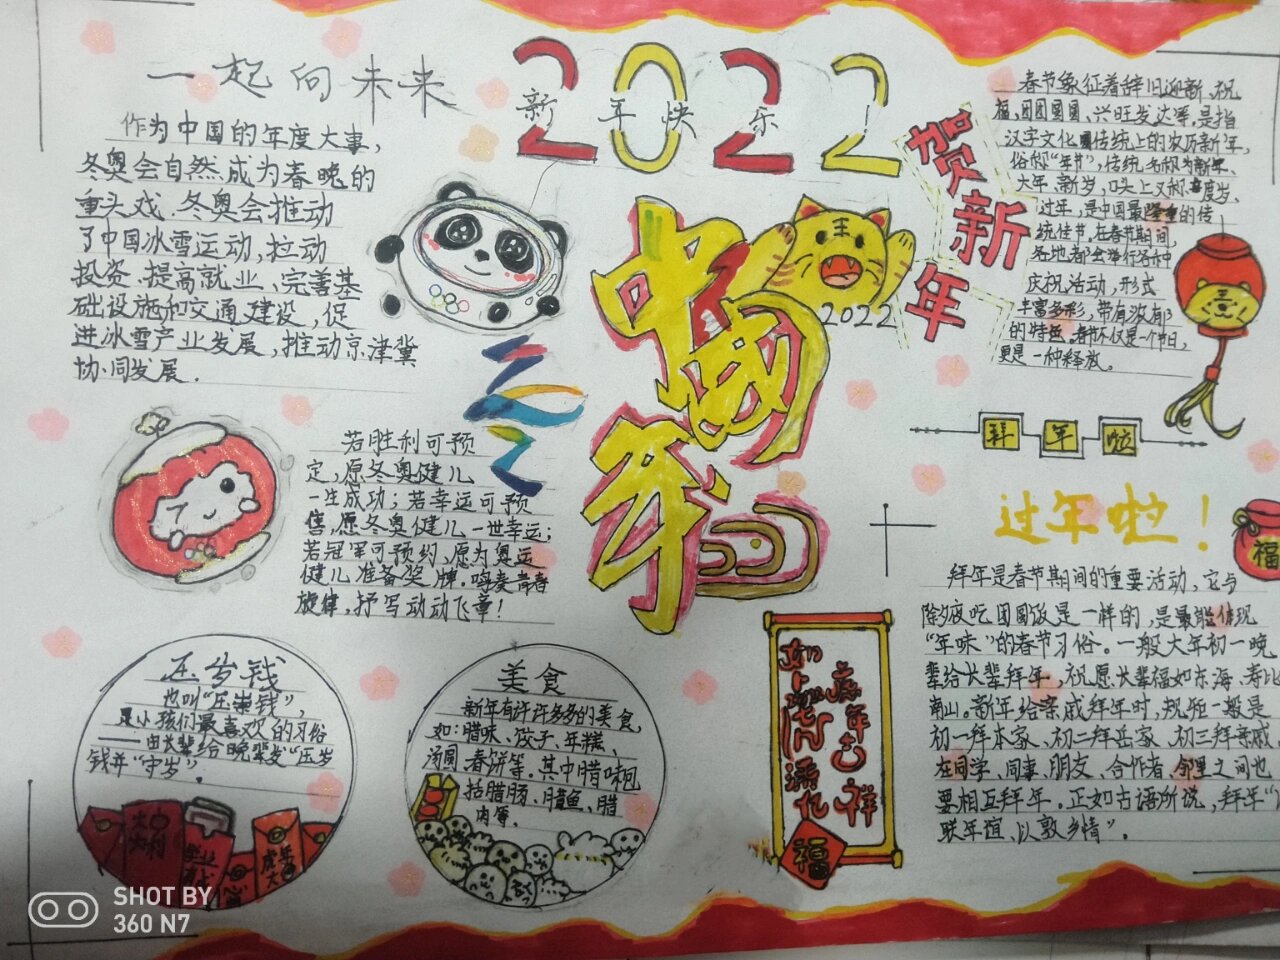 2022
新年快乐!
一起向未来
作为中国的年度大事,
冬奥会自然成为春晚的
重头戏.冬奥会推动
了中国冰雪运动,拉动
投资.提高就业、完善基
础设施和交通建设,促
进冰雪产业发展,推动京津冀
协同发展.
若胜利可预
定,愿冬奥健儿
一生成功;若幸运可预
售,愿冬奥健儿一世幸运;
若冠军可预约,愿为奥运
健儿准备奖牌.鸣奏青春
旋律,抒写动动飞章!
中国年
2022
贺新年
春节象征着辞旧迎新.祝
福,团团圆圆、兴旺发达等.是指
汉字文化圈传统上的农历新年,
俗称"年节",传统名称为新年、
大年、新岁,口头上又称度岁、
过年,是中国最隆重的传
统佳节.在春节期间,
各地都会举行各种
庆祝活动,形式
丰富多彩,带有浓有
的特色.春节不仅是一个节日,
更是一种释放。
拜年啦
过年啦!
福
拜年是春节期间的重要活动,它与
除夕夜吃团圆饭是一样的,是最能体现
"年味"的春节习俗。一般大年初一晚
辈给长辈拜年,祝愿长辈福如东海、寿比
南山。新年给亲戚拜年时,规矩一般是
初一拜本家、初二拜岳家、初三拜亲戚.
在同学、同事、朋友、合作者、邻里之间也
要相互拜年。正如古语所说,拜年"
联年谊,以敦乡情"。
压岁钱
也叫"压祟钱",
是小孩们最喜欢的习俗
——由长辈给晚辈发"压岁
钱并"守岁"。
大吉
大利
虎年
大吉
美食
新年有许许多多的美食,
如:腊味、饺子、年糕、
汤圆、春饼等.其中腊味包
括腊肠、腊鱼、腊
肉等.
虎年吉祥
福
SHOT BY
360 N7